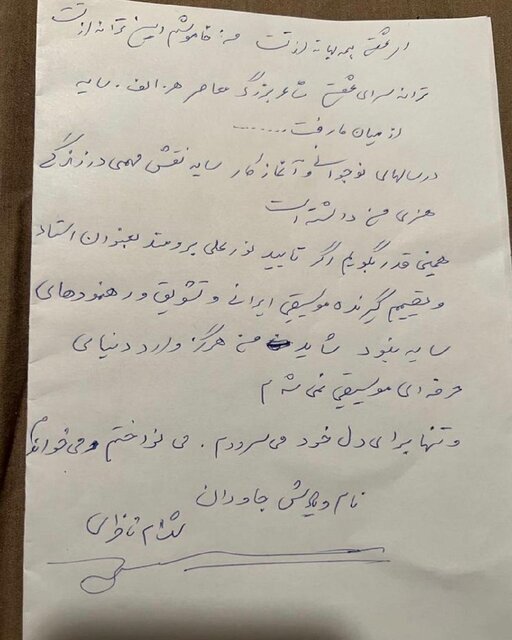 ای عشق همه بهانه از تست من خاموشم این ترانه از تست
ترانه سرای عشق شاعر بزرگ معاصر هـ. الف. سایه
از میان ما رفت ........
در سالهای نوجوانی و آغاز کار سایه نقش مهمی در زندگی
هنری من داشته است
همین قدر بگویم اگر تایید نورعلی برومند بعنوان استاد
و تصمیم گیرنده موسیقی ایرانی و تشویق و رهنمودهای
سایه نبود شاید من هرگز وارد دنیای
حرفه ای موسیقی نمی شدم
و تنها برای دل خود می سرودم . می نواختم و می خواندم
نام و یادش جاودان
شهرام ناظری